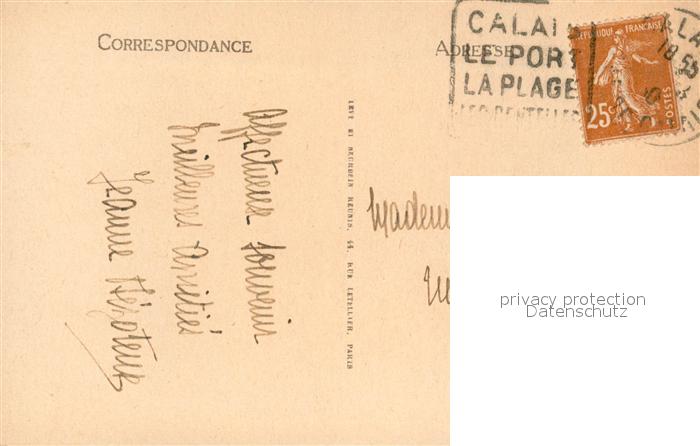 CORRESPONDANCE
ADRESSE
CALAI
LE PORT
LA PLAGE
LES DENTELLES
RÉPUBLIQUE FRANÇAISE
25c
POSTES
18 55
Affectueux souvenir
Meilleures Amitiés
Jeanne
LEVY ET NEURDEIN RÉUNIS, 44, RUE LETELLIER, PARIS
Madem
privacy protection
Datenschutz